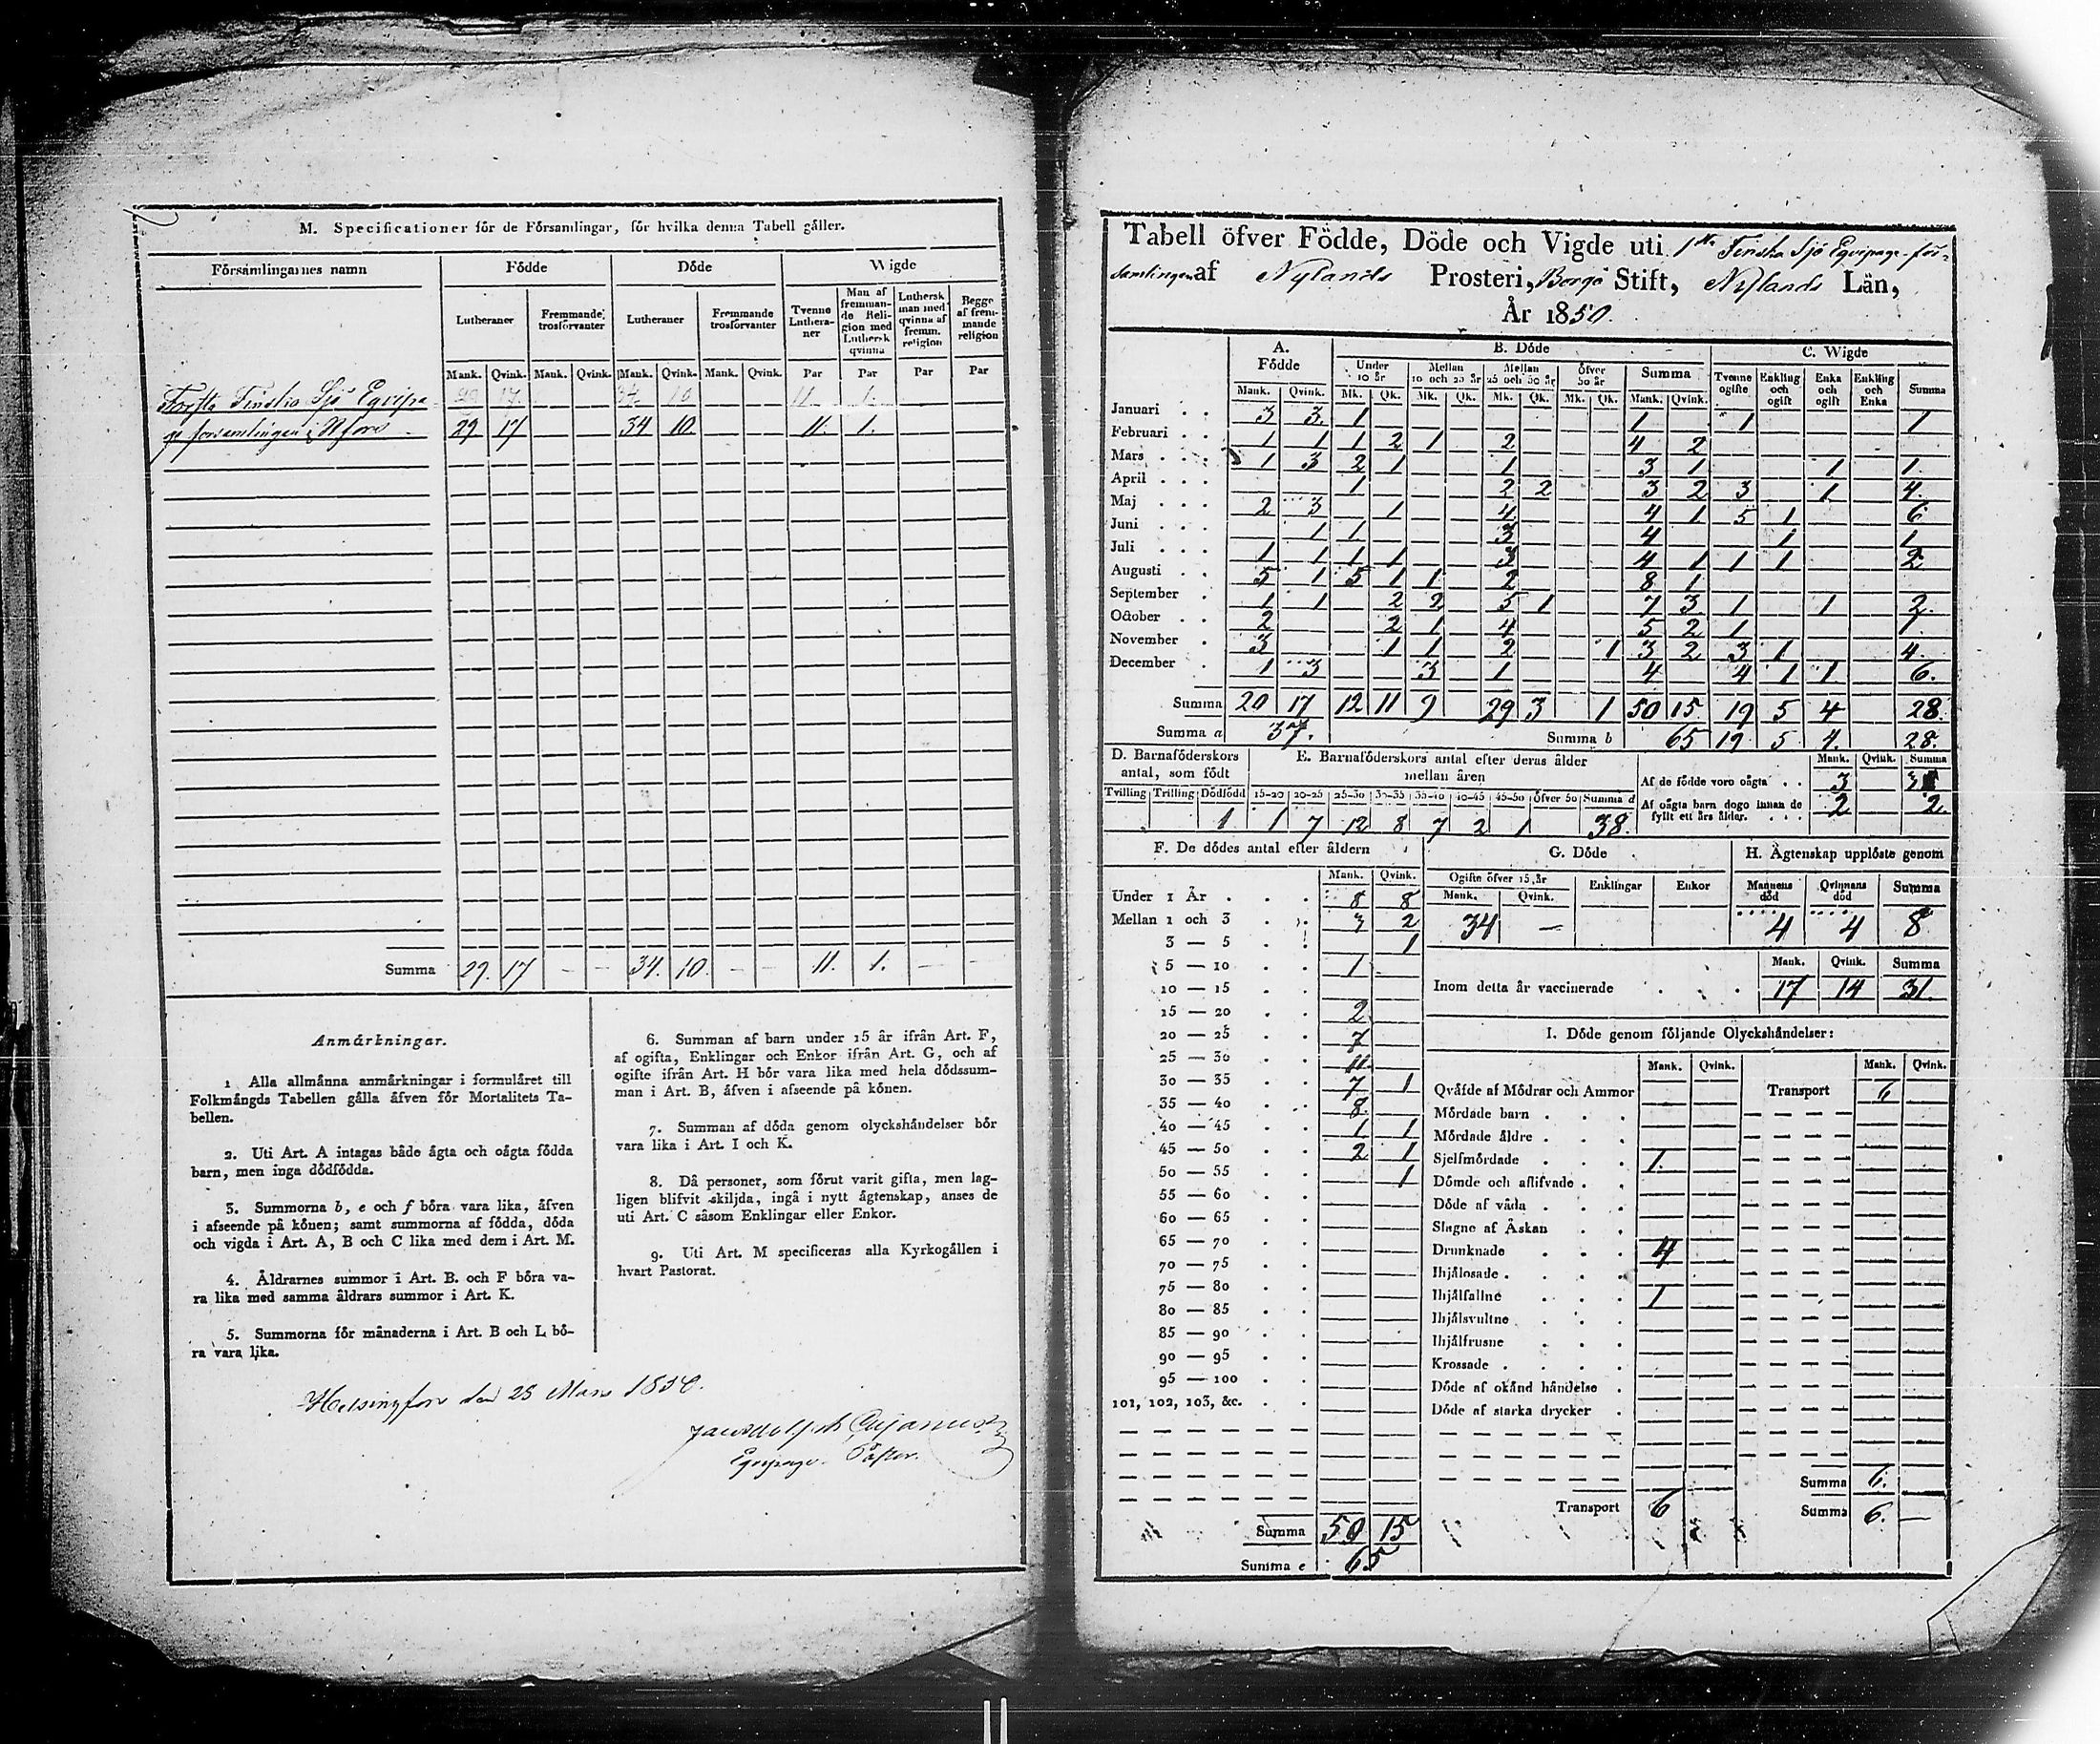 M. Specificationer för de Församlingar, för hvilka denna Tabell gäller.
Församlingarnes namn Födde Döde Wigde
Lutheraner Fremmande trosförvanter Lutheraner Fremmande trosförvanter Tvenne Lutheraner Man af fremmande Religion med Luthersk qvinna Luthersk man med qvinna af fremm. religion Begge af fremmande religion
Mank. Qvink. Mank. Qvink. Mank. Qvink. Mank. Qvink. Par Par Par Par
Första Finska Sjö Eqvipa-
ge församlingen i Hfors 29 17 34 10. 11. 1.
Summa 29. 17 - - 34. 10. - - 11. 1. - -
Anmärkningar.
1 Alla allmänna anmärkningar i formuläret till
Folkmängds Tabellen gälla äfven för Mortalitets Ta-
bellen.
2. Uti Art. A intagas både ägta och oägta födda
barn, men inga dödfödda.
3. Summorna b, e och f böra vara lika, äfven
i afseende på könen; samt summorna af födda, döda
och vigda i Art. A, B och C lika med dem i Art. M.
4. Åldrarnes summor i Art. B. och F böra va-
ra lika med samma åldrars summor i Art. K.
5. Summorna för månaderna i Art. B och L bö-
ra vara lika.
6. Summan af barn under 15 år ifrån Art. F,
af ogifta, Enklingar och Enkor ifrån Art. G, och af
ogifte ifrån Art. H bör vara lika med hela dödssum-
man i Art. B, äfven i afseende på könen.
7. Summan af döda genom olyckshändelser bör
vara lika i Art. I och K.
8. Då personer, som förut varit gifta, men lag-
ligen blifvit skiljda, ingå i nytt ägtenskap, anses de
uti Art. C såsom Enklingar eller Enkor.
9. Uti Art. M specificeras alla Kyrkogällen i
hvart Pastorat.
Helsingfors den 25 Mars 1850.
Eqvipage Pastor.
Tabell öfver Födde, Döde och Vigde uti 1sta Finska Sjö Eqvipage-för-
samlingen af Nylands Prosteri, Borgå Stift, Nylands Län,
År 1850.
A. Födde B. Döde C. Wigde
Under 10 år Mellan 10 och 25 år Mellan 25 och 50 år Öfver 50 år Summa Tvenne ogifte Enkling och ogift Enka och ogift Enkling och Enka Summa
Mank. Qvink. Mk. Qk. Mk. Qk. Mk. Qk. Mk. Qk. Mank. Qvink.
Januari . . 3 3. 1 1 1 1
Februari . . 1 1 1 2 1 2 4 2
Mars . . . 1 3 2 1 1 3 1 1 1
April . . . 1 2 2 3 2 3 1 4.
Maj . . . 2 3 1 4 4 1 5 1 6
Juni . . . 1 1 3 4 1 1
Juli . . . 1 1 1 1 3 4 1 1 1 2
Augusti . . 5 1 5 1 1 2 8 1
September . 1 1 2 2 5 1 7 3 1 1 2.
October . . 2 2 1 4 5 2 1 1.
November . 3 1 1 2 1 3 2 3 1 4.
December . 1 3 3 1 4 4 1 1 6.
Summa 20 17 12 11 9 29 3 1 50 15 19 5 4 28.
Summa a 37. Summa b 65 19 5 4. 28.
D. Barnaföderskors antal, som födt
Tvilling Trilling Dödfödd
1
E. Barnaföderskors antal efter deras ålder mellan åren
15-20 20-25 25-30 30-35 35-40 40-45 45-50 Öfver 50 Summa d
1 7 12 8 7 2 1 38.
Mank. Qvink. Summa
Af de födde voro oägta . . 3 3
Af oägta barn dogo innan de fyllt ett års ålder. . . . 2 2.
F. De dödes antal efter åldern
Mank. Qvink.
Under 1 År . . . 8 8
Mellan 1 och 3 . . 3 2
3 — 5 . . 1
5 — 10 . . 1
10 — 15 . .
15 — 20 . . 2
20 — 25 . . 7
25 — 30 . . 11.
30 — 35 . . 7 1
35 — 40 . . 8.
40 — 45 . . 1 1
45 — 50 . . 2 1
50 — 55 . . 1
55 — 60 . .
60 — 65 . .
65 — 70 . .
70 — 75 . .
75 — 80 . .
80 — 85 . .
85 — 90 . .
90 — 95 . .
95 — 100 . .
101, 102, 103, &c. . .
Summa 50 15
Summa e 65
G. Döde
Ogifte öfver 15 år Enklingar Enkor
Mank. Qvink.
34 —
H. Ägtenskap upplöste genom
Mannens död Qvinnans död Summa
4 4 8
Mank. Qvink. Summa
Inom detta år vaccinerade . . . 17 14 31.
I. Döde genom följande Olyckshändelser:
Mank. Qvink. Mank. Qvink.
Qväfde af Mödrar och Ammor Transport 6
Mördade barn . . .
Mördade äldre . . .
Sjelfmördade . . . 1.
Dömde och aflifvade . .
Döde af våda . . .
Slagne af Åskan . .
Drunknade . . . 4
Ihjälosade . . . .
Ihjälfallne . . . 1
Ihjälsvultne . . .
Ihjälfrusne . . .
Krossade . . . .
Döde af okänd händelse .
Döde af starka drycker .
Summa 6.
Transport 6 Summa 6. —